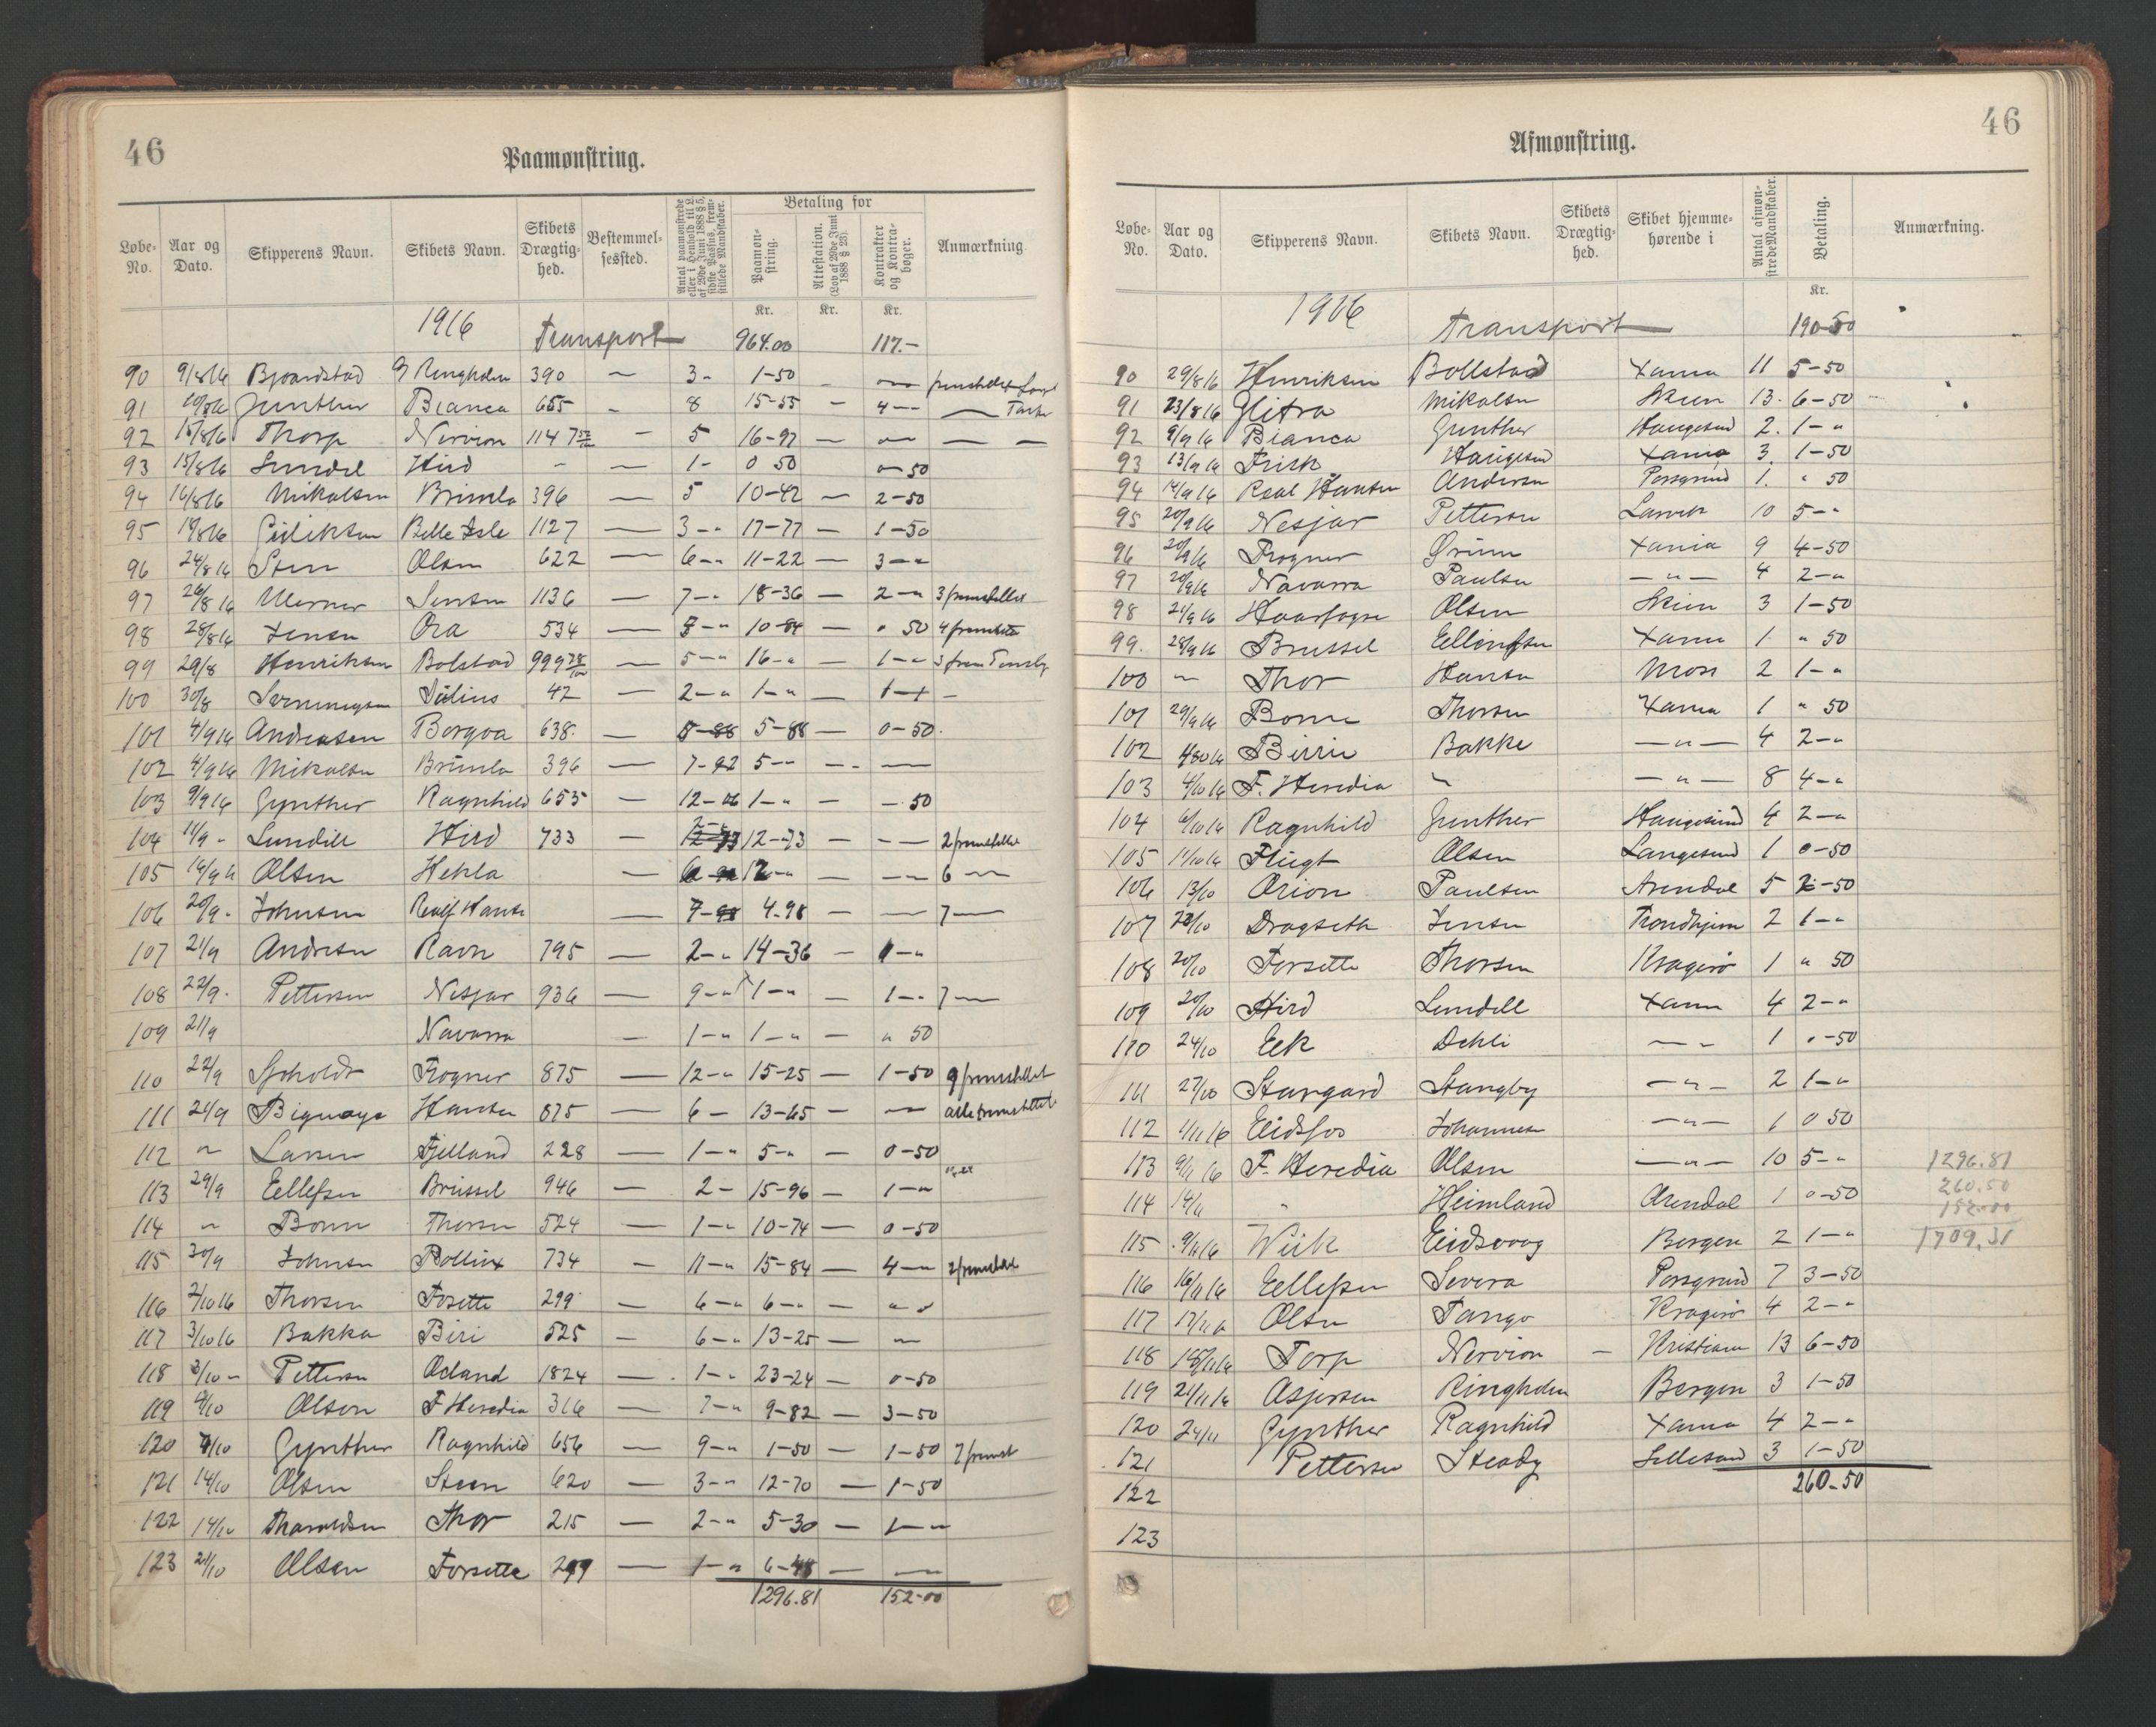 46
Paamønstring.
Løbe-No. Aar og Dato. Skipperens Navn. Skibets Navn. Skibets Drægtighed. Bestemmelsessted. Antal paamønstrede eller i Henhold til L. af 29de Juni 1888 § 5, sidste Passus, fremstillede Mandskaber. Betaling for Paamønstring. Attestation. (Lov af 29de Juni 1888 § 23). Kontrakter og Kontrabøger. Anmærkning
Kr. Kr. Kr.
1916 Transport 964.00 117.-
90 9/8 16 Ringholm 390 — 3 - 1-50 -
91 Gunther Bianca 655 - 8 15-55 - 4--
92 15/8 16 Thorp Nervion 1147 — 5 16-97 —
93 15/8 16 Lundel Hird - — 1- 0 50 50
94 16/8 16 Mikalsen Brimla 396 — 5 10-42 — 2-50
95 19/8 16 Belle Isle 1127 — 3-- 17-77 — 1-50
96 24/8 16 Sten Olsen 622 — 6-- 11-22 — 3--
97 26/8 16 Werner Jensen 1136 — 7-- 18-36 — 2-- 3 fremstillet
98 28/8 16 Jensen Ora 534 — 8-- 10-84 — " 50 4
99 29/8 Henriksen Bolstad 999 — 5-- 16-- — 1-- 3
100 30/8 Julius 42 — 2-- 1-- — 1-- -
101 4/9 16 Andreasen Borgva 638 — 5-88 — 0-50
102 4/9 16 Mikalsen Brimla 396 — 7-92 5-- — —
103 9/9 16 Gynther Ragnhild 653 — 12-06 1-- — -50
104 11/9 - Lundell Hird 733 — 12-73 — — 2 fremstillet
105 16/9 16 Olsen Hekla — 12-- — — 6 —
106 20/9 - Johnsen Roalf Hansen — 4.98 — — 7 —
107 21/9 Andresen Ravn 795 — 2-- 14-36 — 1--
108 22/9 - Pettersen Nesjar 936 — 9-- 1-- — 1-- 7 —
109 21/9 Navarra — 1-- 1-- — " 50
110 22/9 Sjoholdt Frogner 875 — 12-- 15-25 — 1-50 9 fremstillet
111 21/9 Hansen 875 — 6 - 13-65 — — alle fremstillet
112 " Larsen Fjelland 228 — 1-- 5-- — 0-50
113 29/9 Eellefsen Brussel 946 — 2 - 15-96 — 1--
114 " Bonn Thorsen 524 — 1-- 10-74 — 0-50
115 30/9 Johnsen Pollux 734 — 11-- 15-84 — 4-- 2 fremstillet
116 2/10 16 Thorsen Forsette 299 — 6-- 6-- —
117 3/10 16 Bakka Biri 525 — 6-- 13-25 — —
118 3/10 - Pettersen Acland 1824 — 1-- 23-24 — 0-50
119 4/10 Olson F Heredia 316 — 7-- 9-82 — 3-50
120 7/10 Gynther Ragnhild 656 — 9-- 1-50 — 1-50 7 fremst
121 14/10 Olsen Steen 620 — 3-- 12-70 — 1-50
122 14/10 Tharaldsen Thor 215 — 2-- 5-30 — 1--
123 21/10 Olsen Forsette 299 — 1-- 6-48 — —
1296.81 152-00
46
Afmønstring.
Løbe-No. Aar og Dato. Skipperens Navn. Skibets Navn. Skibets Drægtighed. Skibet hjemmehørende i Antal afmønstrede Mandskaber. Betaling. Anmærkning.
Kr.
1916 Transport 190-50
90 29/8 16 Henriksen Bollstad Xania 11 5-50
91 23/8 16 Glitra Mikalsen Skien 13. 6-50
92 9/9 16 Bianca Gunther Haugesund 2. 1--
93 13/9 16 Frisk Haugesund Xania 3 1-50
94 14/9 16 Roal Hansen Andersen Porsgrund 1. " 50
95 20/9 16 Nesjar Pettersen Larvik 10 5--
96 20/9 16 Frogner Ørum Xania 9 4-50
97 20/9 16 Navarra Paulsen — " — 4 2--
98 21/9 16 Haarfagre Olsen Skien 3 1-50
99. 28/9 16 Brussel Ellingsen Xania 1 " 50
100 " Thor Hansen Moss 2 1--
101 29/9 16 Bonn Thorsen Xania 1 " 50
102 Birrie Bakke — " — 4 2--
103 4/10 16 F. Heredia " — " — 8 4--
104 6/10 16 Ragnhild Gunther Haugesund 4 2--
105 11/10 16 Flugt Olsen Langesund 1 0-50
106 13/10 Orion Paulsen Arendal 5 2-50
107 Dragseth Jensen Trondhjem 2 1--
108 20/10 Forsette Thorsen Kragerö 1 " 50
109 20/10 Hird Lundell Xania 4 2--
110 24/10 Eek Dehli — " 1 "-50
111 27/10 Stangard Stangby — " — 2 1--
112 1/11 16 Eidsfos Johannesen — " — 1 0 50
113 9/11 16 F. Heredia Olsen — " — 10 5-- 1296.81
114 14/11 " Heimland Arendal 1 0-50 260.50
152.00
115 9/11 16 Wiik Eidsvaag Bergen 2 1-- 1709.31
116 16/11 16 Eellefsen Severa Porsgrund 7 3-50
117 17/11 16 Olsen Tango Kragerö 4 2--
118 18/11 16 Torp Nervion — Kristiania 13 6-50
119 21/11 16 Asjersen Ringholm Bergen 3 1-50
120 24/11 Gynther Ragnhild Xania 4 2--
121 Pettersen Steady Lillesand 3 1-50
122 260-50
123